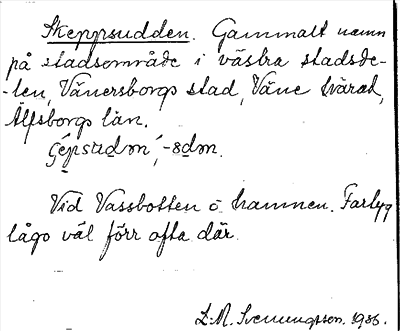 Skeppsudden. Gammalt namn
på stadsområde i västra stadsde-
-len, Vänersborgs stad, Väne härad,
Älfsborgs län.
Vid Vassbotten o hamnen. Fartyg
lågo väl förr ofta där.
1936.